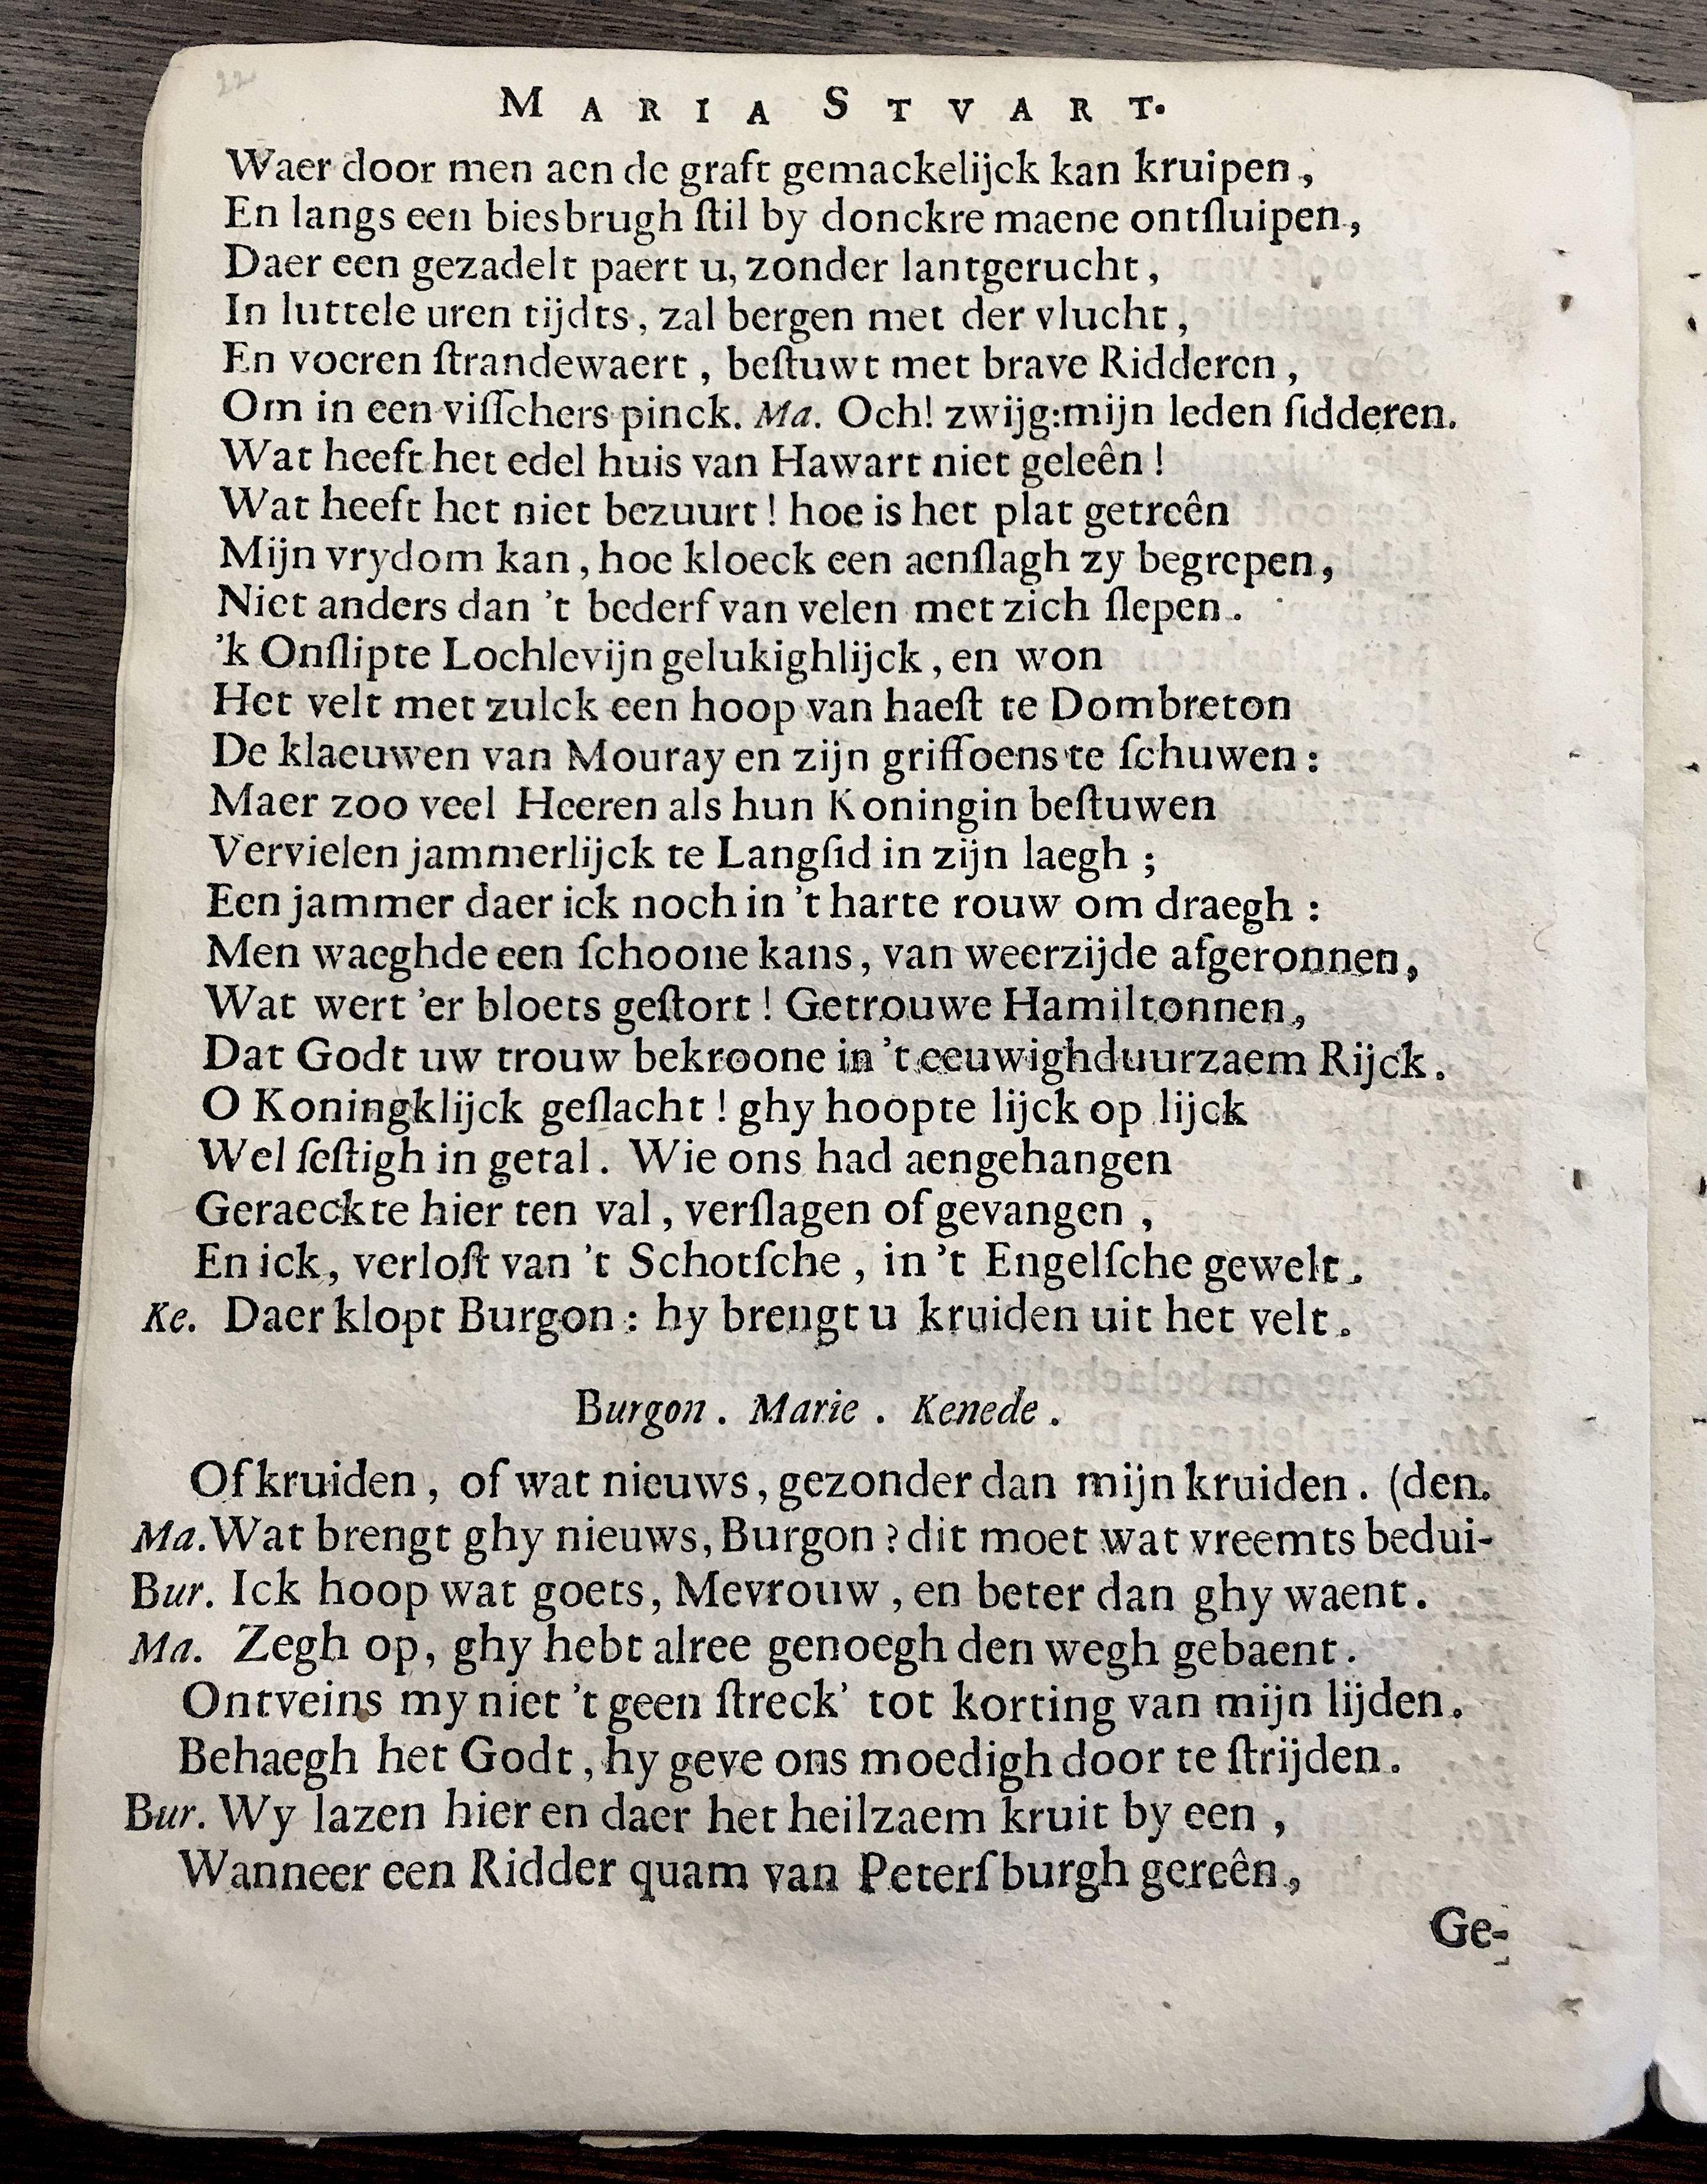 22
MARIA STVART.
Waer door men aen de graft gemackelijck kan kruipen,
En langs een biesbrugh ſtil by donckre maene ontſluipen,
Daer een gezadelt paert u, zonder lantgerucht,
In luttele uren tijdts, zal bergen met der vlucht,
En voeren ſtrandewaert, beſtuwt met brave Ridderen,
Om in een viſſchers pinck. Ma. Och! zwijg:mijn leden ſidderen.
Wat heeft het edel huis van Hawart niet geleên!
Wat heeft het niet bezuurt! hoe is het plat getreên
Mijn vrydom kan, hoe kloeck een aenſlagh zy begrepen,
Niet anders dan 't bederf van velen met zich ſlepen.
'k Onſlipte Lochlevijn gelukighlijck, en won
Het velt met zulck een hoop van haeſt te Dombreton
De klaeuwen van Mouray en zijn griffoens te ſchuwen:
Maer zoo veel Heeren als hun Koningin beſtuwen
Vervielen jammerlijck te Langſid in zijn laegh;
Een jammer daer ick noch in 't harte rouw om draegh:
Men waeghde een ſchoone kans, van weerzijde afgeronnen,
Wat wert 'er bloets geſtort! Getrouwe Hamiltonnen,
Dat Godt uw trouw bekroone in 't eeuwighduurzaem Rijck.
O Koningklijck geſlacht! ghy hoopte lijck op lijck
Wel ſeſtigh in getal. Wie ons had aengehangen
Geraeckte hier ten val, verſlagen of gevangen,
En ick, verloſt van 't Schotſche, in 't Engelſche gewelt.
Ke. Daer klopt Burgon: hy brengt u kruiden uit het velt.
Burgon. Marie. Kenede.
Of kruiden, of wat nieuws, gezonder dan mijn kruiden. (den.
Ma. Wat brengt ghy nieuws, Burgon? dit moet wat vreemts bedui-
Bur. Ick hoop wat goets, Mevrouw, en beter dan ghy waent.
Ma. Zegh op, ghy hebt alree genoegh den wegh gebaent.
Ontveins my niet 't geen ſtreck' tot korting van mijn lijden.
Behaegh het Godt, hy geve ons moedigh door te ſtrijden.
Bur. Wy lazen hier en daer het heilzaem kruit by een,
Wanneer een Ridder quam van Peterſburgh gereên,
Ge-